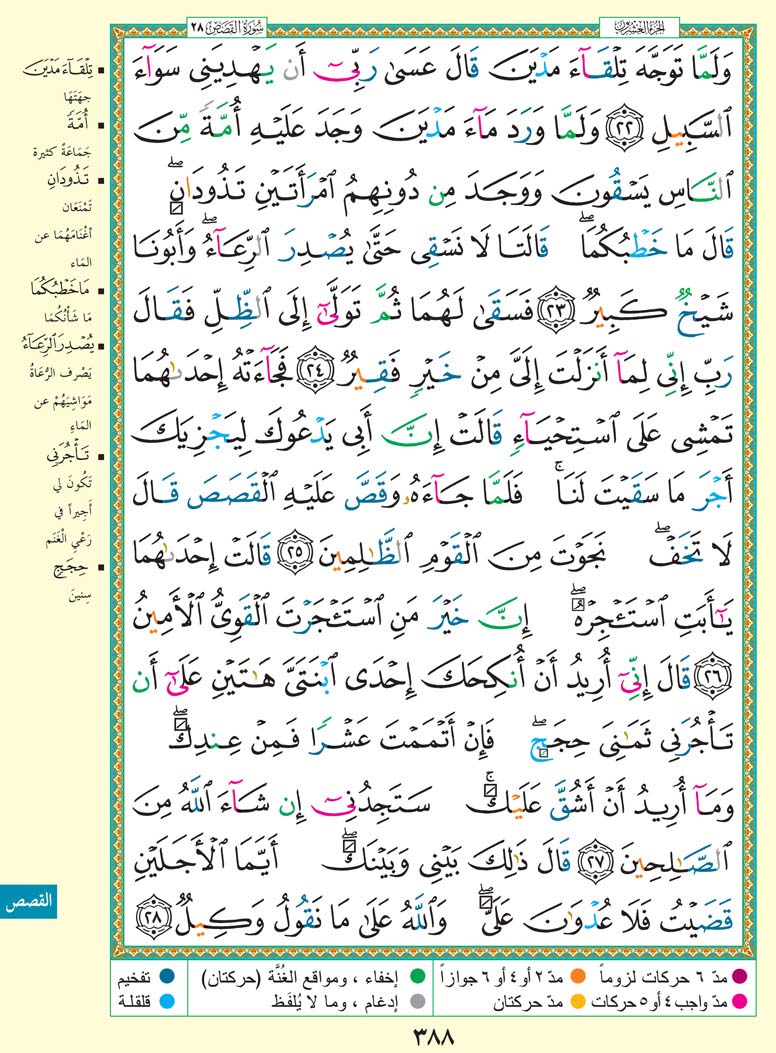 الجزء العشرون
سورة القصص ٢٨
وَلَمَّا تَوَجَّهَ تِلْقَآءَ مَدْيَنَ قَالَ عَسَىٰ رَبِّىٓ أَن يَهْدِيَنِى سَوَآءَ
ٱلسَّبِيلِ ٢٢ وَلَمَّا وَرَدَ مَآءَ مَدْيَنَ وَجَدَ عَلَيْهِ أُمَّةً مِّنَ
ٱلنَّاسِ يَسْقُونَ وَوَجَدَ مِن دُونِهِمُ ٱمْرَأَتَيْنِ تَذُودَانِ ۖ
قَالَ مَا خَطْبُكُمَا ۖ قَالَتَا لَا نَسْقِى حَتَّىٰ يُصْدِرَ ٱلرِّعَآءُ ۖ وَأَبُونَا
شَيْخٌ كَبِيرٌ ٢٣ فَسَقَىٰ لَهُمَا ثُمَّ تَوَلَّىٰٓ إِلَى ٱلظِّلِّ فَقَالَ
رَبِّ إِنِّى لِمَآ أَنزَلْتَ إِلَىَّ مِنْ خَيْرٍ فَقِيرٌ ٢٤ فَجَآءَتْهُ إِحْدَىٰهُمَا
تَمْشِى عَلَى ٱسْتِحْيَآءٍ قَالَتْ إِنَّ أَبِى يَدْعُوكَ لِيَجْزِيَكَ
أَجْرَ مَا سَقَيْتَ لَنَا ۚ فَلَمَّا جَآءَهُۥ وَقَصَّ عَلَيْهِ ٱلْقَصَصَ قَالَ
لَا تَخَفْ ۖ نَجَوْتَ مِنَ ٱلْقَوْمِ ٱلظَّٰلِمِينَ ٢٥ قَالَتْ إِحْدَىٰهُمَا
يَٰٓأَبَتِ ٱسْتَـْٔجِرْهُ ۖ إِنَّ خَيْرَ مَنِ ٱسْتَـْٔجَرْتَ ٱلْقَوِىُّ ٱلْأَمِينُ
٢٦ قَالَ إِنِّىٓ أُرِيدُ أَنْ أُنكِحَكَ إِحْدَى ٱبْنَتَىَّ هَٰتَيْنِ عَلَىٰٓ أَن
تَأْجُرَنِى ثَمَٰنِىَ حِجَجٍ ۖ فَإِنْ أَتْمَمْتَ عَشْرًا فَمِنْ عِندِكَ ۖ
وَمَآ أُرِيدُ أَنْ أَشُقَّ عَلَيْكَ ۚ سَتَجِدُنِىٓ إِن شَآءَ ٱللَّهُ مِنَ
ٱلصَّٰلِحِينَ ٢٧ قَالَ ذَٰلِكَ بَيْنِى وَبَيْنَكَ ۖ أَيَّمَا ٱلْأَجَلَيْنِ
قَضَيْتُ فَلَا عُدْوَٰنَ عَلَىَّ ۖ وَٱللَّهُ عَلَىٰ مَا نَقُولُ وَكِيلٌ ٢٨
▪ تِلْقَآءَ مَدْيَنَ
جِهَتَهَا
▪ أُمَّةً
جَمَاعَةً كثيرة
▪ تَذُودَانِ
تَمْنَعَان
أَغْنَامَهُمَا عن
الماء
▪ مَا خَطْبُكُمَا
مَا شَأْنُكُمَا
▪ يُصْدِرَ ٱلرِّعَآءُ
يَصْرف الرُّعَاةُ
مَوَاشِيَهُمْ عن
المَاءِ
▪ تَأْجُرَنِى
تَكُونَ لي
أَجِيراً في
رَعْيِ الْغَنَم
▪ حِجَجٍ
سِنينَ
القصص
مدّ ٦ حركات لزوماً ● مدّ ٢ أو ٤ أو ٦ جوازاً ● إخفاء ، ومواقع الغُنَّة (حركتان) ● تفخيم
مدّ واجب ٤ أو ٥ حركات ● مدّ حركتان ● إدغام ، وما لا يُلفَظ ● قلقلة
٣٨٨